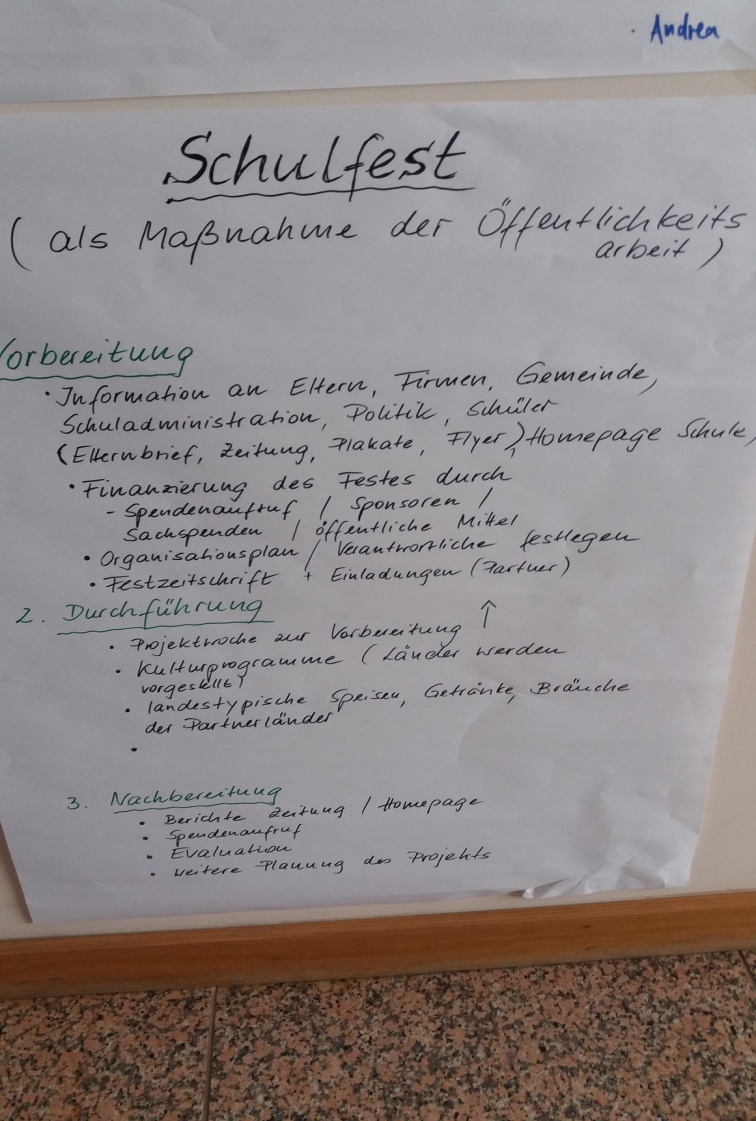 · Andrea
Schulfest
( als Maßnahme der Öffentlichkeits
arbeit )
Vorbereitung
· Information an Eltern, Firmen, Gemeinde,
Schuladministration, Politik, Schüler
(Elternbrief, Zeitung, Plakate, Flyer), Homepage Schule,
· Finanzierung des Festes durch
- Spendenaufruf / Sponsoren /
Sachspenden / öffentliche Mittel
· Organisationsplan / Verantwortliche festlegen
· Festzeitschrift + Einladungen (Partner)
↑
2. Durchführung
· Projektwoche zur Vorbereitung
· Kulturprogramme (Länder werden
vorgestellt)
· landestypische Speisen, Getränke, Bräuche
der Partnerländer
·
3. Nachbereitung
· Berichte Zeitung / Homepage
· Spendenaufruf
· Evaluation
· weitere Planung des Projekts